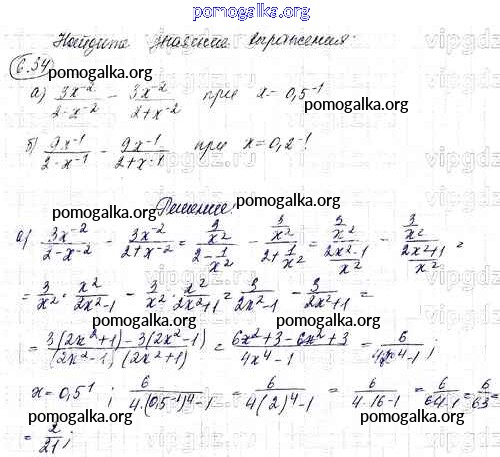 pomogalka.org
Найдите значение выражения:
6.34
pomogalka.org pomogalka.org
а) 3x⁻²/(2-x⁻²) - 3x⁻²/(2+x⁻²) при x = 0,5⁻¹
pomogalka.org
б) 9x⁻¹/(2-x⁻¹) - 9x⁻¹/(2+x⁻¹) при x = 0,2⁻¹
pomogalka.org
Решение:
pomogalka.org pomogalka.org
а) 3x⁻²/(2-x⁻²) - 3x⁻²/(2+x⁻²) = (3/x²)/(2-1/x²) - (3/x²)/(2+1/x²) = (3/x²)/((2x²-1)/x²) - (3/x²)/((2x²+1)/x²) =
= 3/x² · x²/(2x²-1) - 3/x² · x²/(2x²+1) = 3/(2x²-1) - 3/(2x²+1) =
pomogalka.org pomogalka.org
= (3(2x²+1)-3(2x²-1))/((2x²-1)(2x²+1)) = (6x²+3-6x²+3)/(4x⁴-1) = 6/(4x⁴-1);
pomogalka.org
x = 0,5⁻¹; 6/(4·(0,5⁻¹)⁴-1) = 6/(4(2)⁴-1) = 6/(4·16-1) = 6/(64-1) = 6/63 =
pomogalka.org pomogalka.org
= 2/21;
pomogalka.org